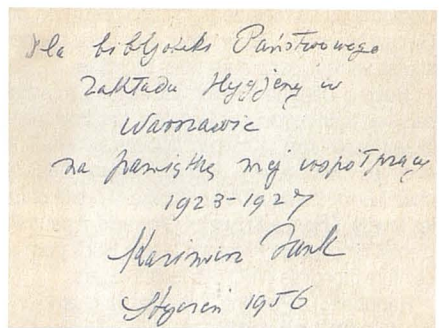 Dla bibljoteki Państwowego
Zakładu Hygjeny w
Warszawie
na pamiątkę mej współpracy
1923-1927
Kazimierz Funk
Styczeń 1956